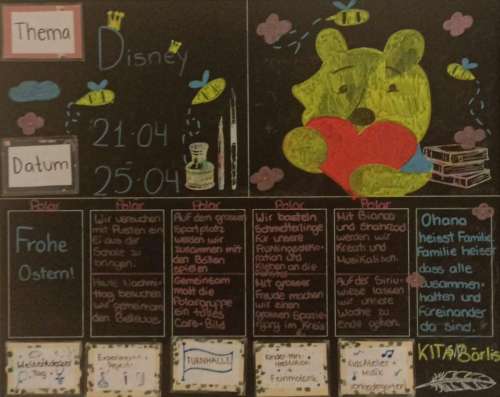 Thema
Disney
21.04
Datum
25.04
Polar
Polar
Polar
Polar
Polar
Frohe
Ostern!
Wir versuchen
mit Pusten ein
Ei aus der
Schale zu
bringen.
Heute Nachmi-
ttag besuchen
wir gemeinsam
den Bellevue.
Auf den grossen
Sportplatz
werden wir
zusammen mit
den Bällen
spielen
Gemeinsam
malt die
Polargruppe
ein tolles
Café-Bild
Wir basteln
Schmetterlinge
für unsere
Frühlingsdeko-
ration und
kleben an die
Mit grosser
Freude machen
wir einen
grossen Spazie-
gang im Kreis
Mit Bianca
und Shahrzad
werden wir
Kreativ und
Musikalisch.
Auf der Siriu-
wiese lassen
wir unsere
Woche zu
Ende gehen.
Ohana
heisst Familie.
Familie heisst
dass alle
zusammen-
halten und
füreinander
da sind.
KITA Bärlis
Tag
Experiment
Projekt
TURNHALLE
Kinder-Yin-
Meditation
+
Feinmotorik
Kunstatelier +
Musik
Vorkindergarten